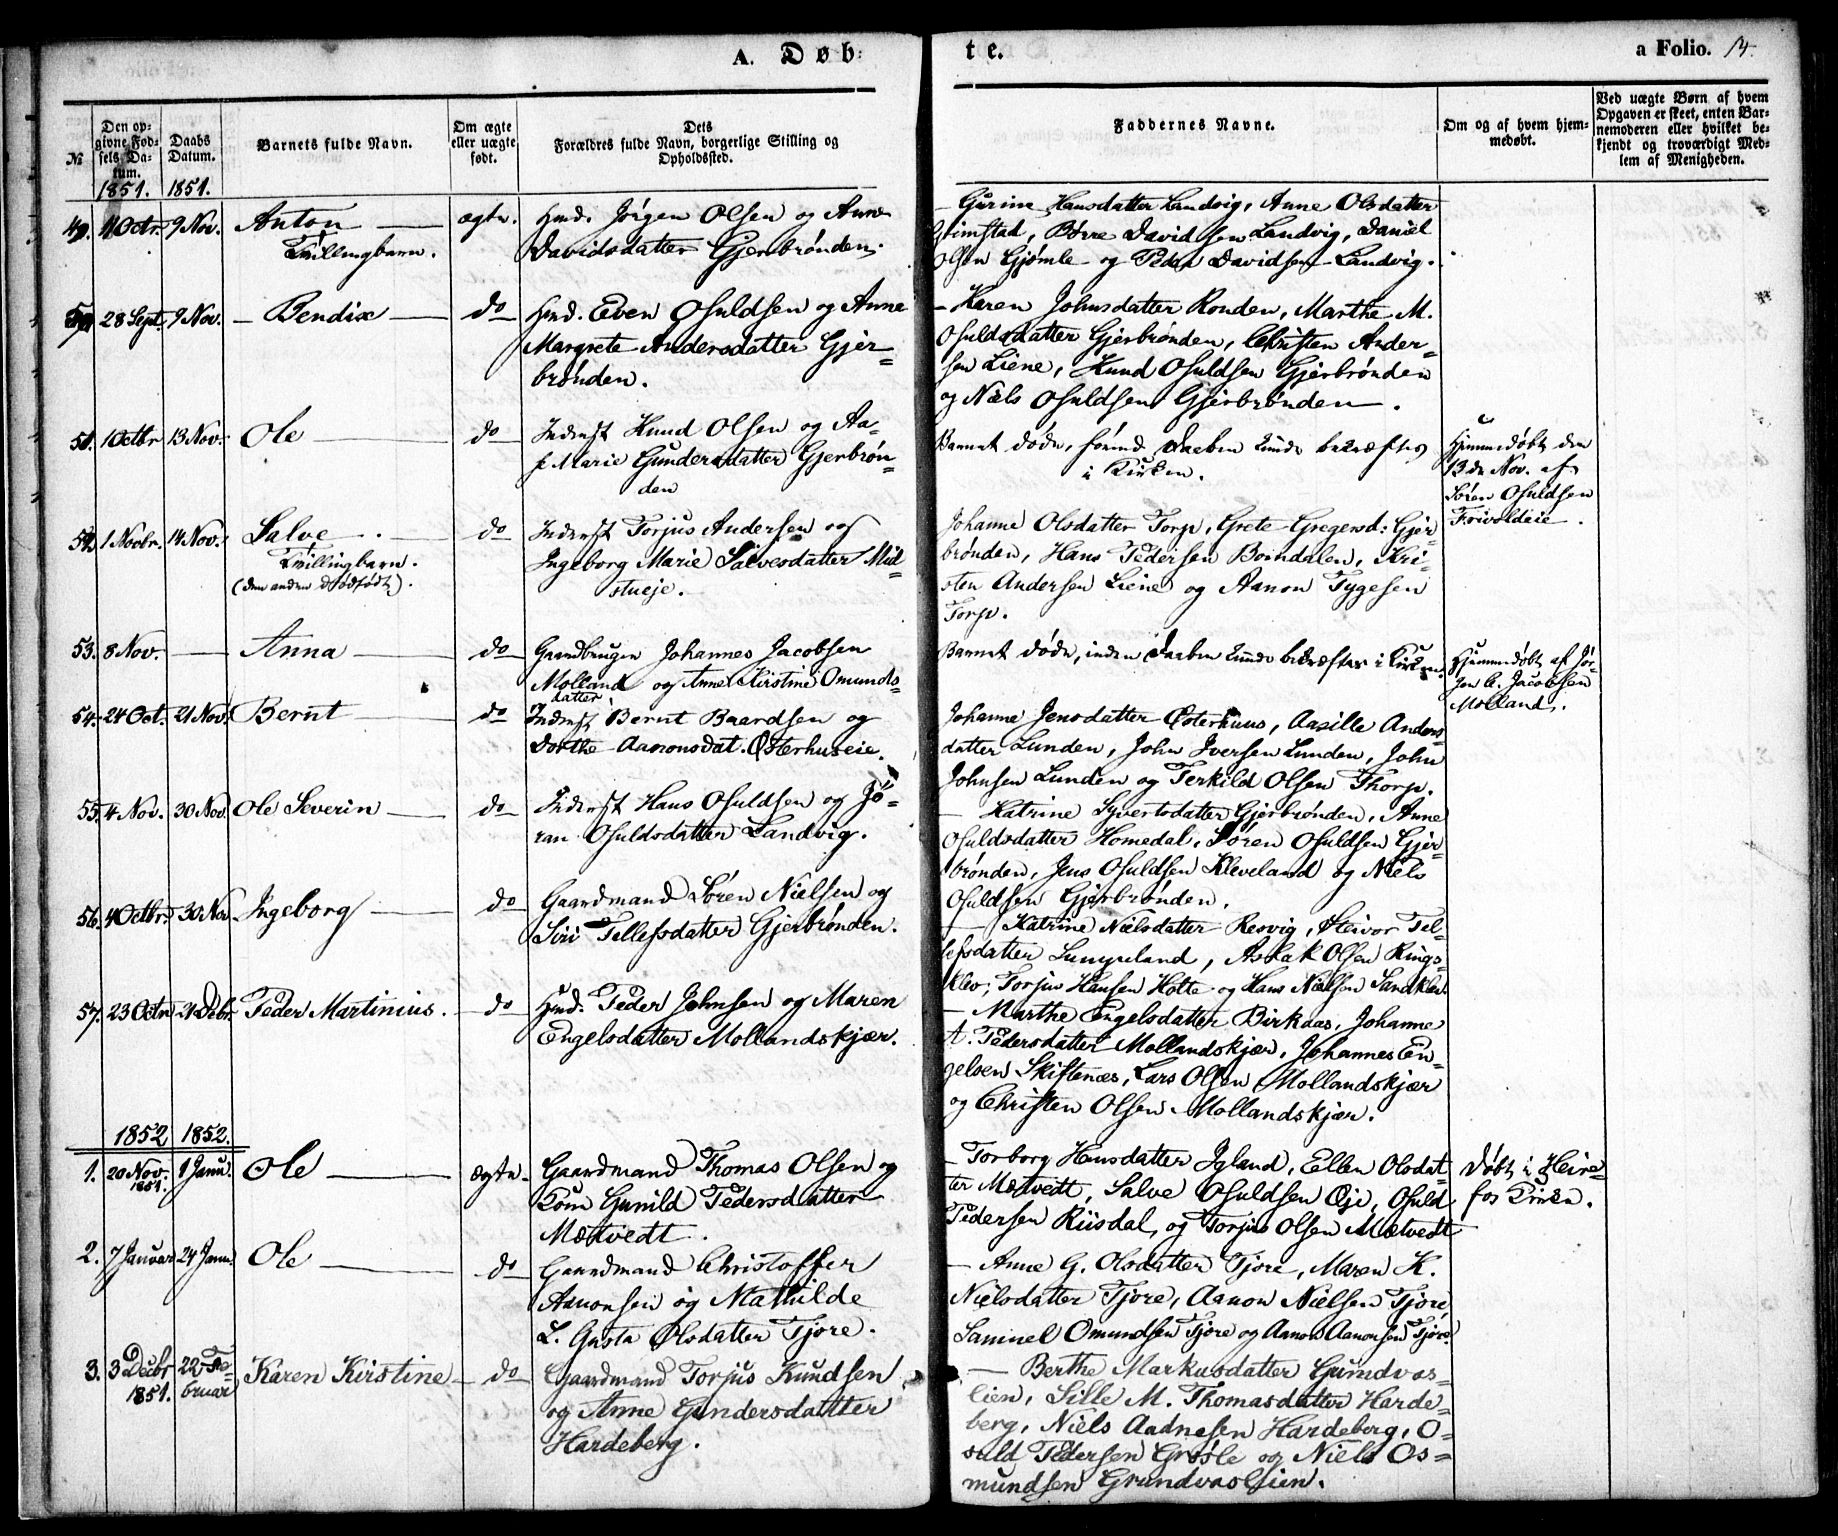 A. Døb:
te.
a Folio. 14.
№
Den op-
givne Fød-
sels Da-
tum.
1851.
Daabs
Datum.
1851.
Barnets fulde Navn.
Om ægte
eller uægte
født.
Dets
Forældres fulde Navn, borgerlige Stilling og
Opholdssted.
Faddernes Navne.
Om og af hvem hjem-
medøbt.
Ved uægte Børn af hvem
Opgaven er skeet, enten Bar-
nemoderen eller hvilket be-
kjendt og troværdigt Med-
lem af Menigheden.
49. 4 Octr. 9 Nov. Anton — ægte. Huusmd. Jörgen Olsen og Anne
Tvillingbarn. Davidsdatter Gjerbrönden.
— Gurine Hansdatter Landvig, Anne Olsdatter
Grimstad, Börre Davidsen Landvig, Daniel
Olsen Gjömle og Peder Davidsen Landvig.
28 Sept. 9 Nov. — Bendix — do Huusmd. Even Osuldsen og Anne
Margrete Andersdatter Gjer-
brönden.
— Karen Johnsdatter Ronden, Marthe M.
Osuldsdatter Gjerbrönden, Christen Ander-
sen Liene, Knud Osuldsen Gjerbrönden
og Niels Osuldsen Gjerbrönden.
51. 1 Octbr 13 Nov. Ole — do Inderst Knud Olsen og Aa-
se Marie Gundersdatter Gjerbrön-
den
Barnet döde, forend Daaben kunde bekræftes
i Kirken.
Hjemmedöbt den
13de Nov. af
Sören Osuldsen
Froivoldeie.
52. 1 Novbr. 14 Nov. Salve — do Inderst Torjus Andersen og
Tvillingbarn. Ingeborg Marie Salvesdatter Mid-
(den anden dödfödt). stueje.
Johanne Olsdatter Torp, Grete Gregersd: Gjer-
brönden, Hans Pedersen Bonndalen, Kri-
sten Andersen Liene og Aanon Tygesen
Torp.
53. 8 Nov. — Anna — do Gaardbruger Johannes Jacobsen
Molland og Anne Kirstine Omunds-
datter
Barnet döde, inden Daaben kunde bekræftes i Kirken.
Hjemmedöbt af Jör-
gen A. Jacobsen
Molland.
54. 24 Oct. 21 Nov. Bernt — do Inderst Bernt Baardsen og
Dorthe Aanonsdat. Österhuseie.
Johanne Jensdatter Österhuus, Aasille Anders-
datter Lunden, John Iversen Lunden, John
Johnsen Lunden og Terkild Olsen Thorp.
55. 4 Nov. 30 Nov. Ole Severin — do Inderst Hans Osuldsen og Jö-
ran Osuldsdatter Landvig.
— Katrine Syvertsdatter Gjerbrönden, Anne
Osuldsdatter Homedal, Sören Osuldsen Gjer-
brönden, Jens Osuldsen Kleveland og Niels
Osuldsen Gjerbrönden.
56. 4 Octbr. 30 Nov Ingeborg — do Gaardmand Sören Nielsen og
Siri Tellefsdatter Gjerbrönden.
— Katrine Nielsdatter Resvig, Steivor Tel-
lefsdatter, Aslak Olsen Rings-
klev, Torjus Hansen Holte og Hans Nielsen Sandkleiv.
57. 23 Octr 21 Debr. Peder Martinius. — do Huusmd. Peder Johnsen og Maren
Engelsdatter Mollandskjær.
— Marthe Engelsdatter Birkaas, Johanne
A. Pedersdatter Mollandskjær, Johannes En-
gelsen Skiftenæs, Lars Olsen Mollandskjær
og Christen Olsen Mollandskjær.
1852 1852.
1. 20 Nov. 1851. 1 Janu. Ole — ægte. Gaardmand Thomas Olsen og
Kone Gunild Pedersdatter
Mætvedt.
— Torborg Hansdatter Igland, Ellen Olsdat-
ter Mætvedt, Salve Osuldsen Øie, Osuld
Pedersen Riisdal, og Torjus Olsen Mætvedt
Döbt i Heire-
fos Kirke.
2. 7 Januar 24 Janu. Ole — do Gaardmand Christoffer
Aanonsen og Mathilde
L. Gusta Olsdatter Tjore.
— Anne G. Olsdatter Tjore, Maren K.
Nielsdatter Tjore, Aanon Nielsen Tjore
Samuel Omundsen Tjore og Aanon Aanonsen Tjore.
3. 3 Decbr 1851. 22 Fe-
bruar Karen Kirstine — do Gaardmand Torjus Knudsen
og Anne Gundersdatter
Hardeberg.
— Berthe Markusdatter Grundvas-
lien, Sille M. Thomasdatter Harde-
berg, Niels Aadnesen Hardeberg, O-
suld Pedersen Grøsle og Niels Os-
mundsen Grundvaslien.